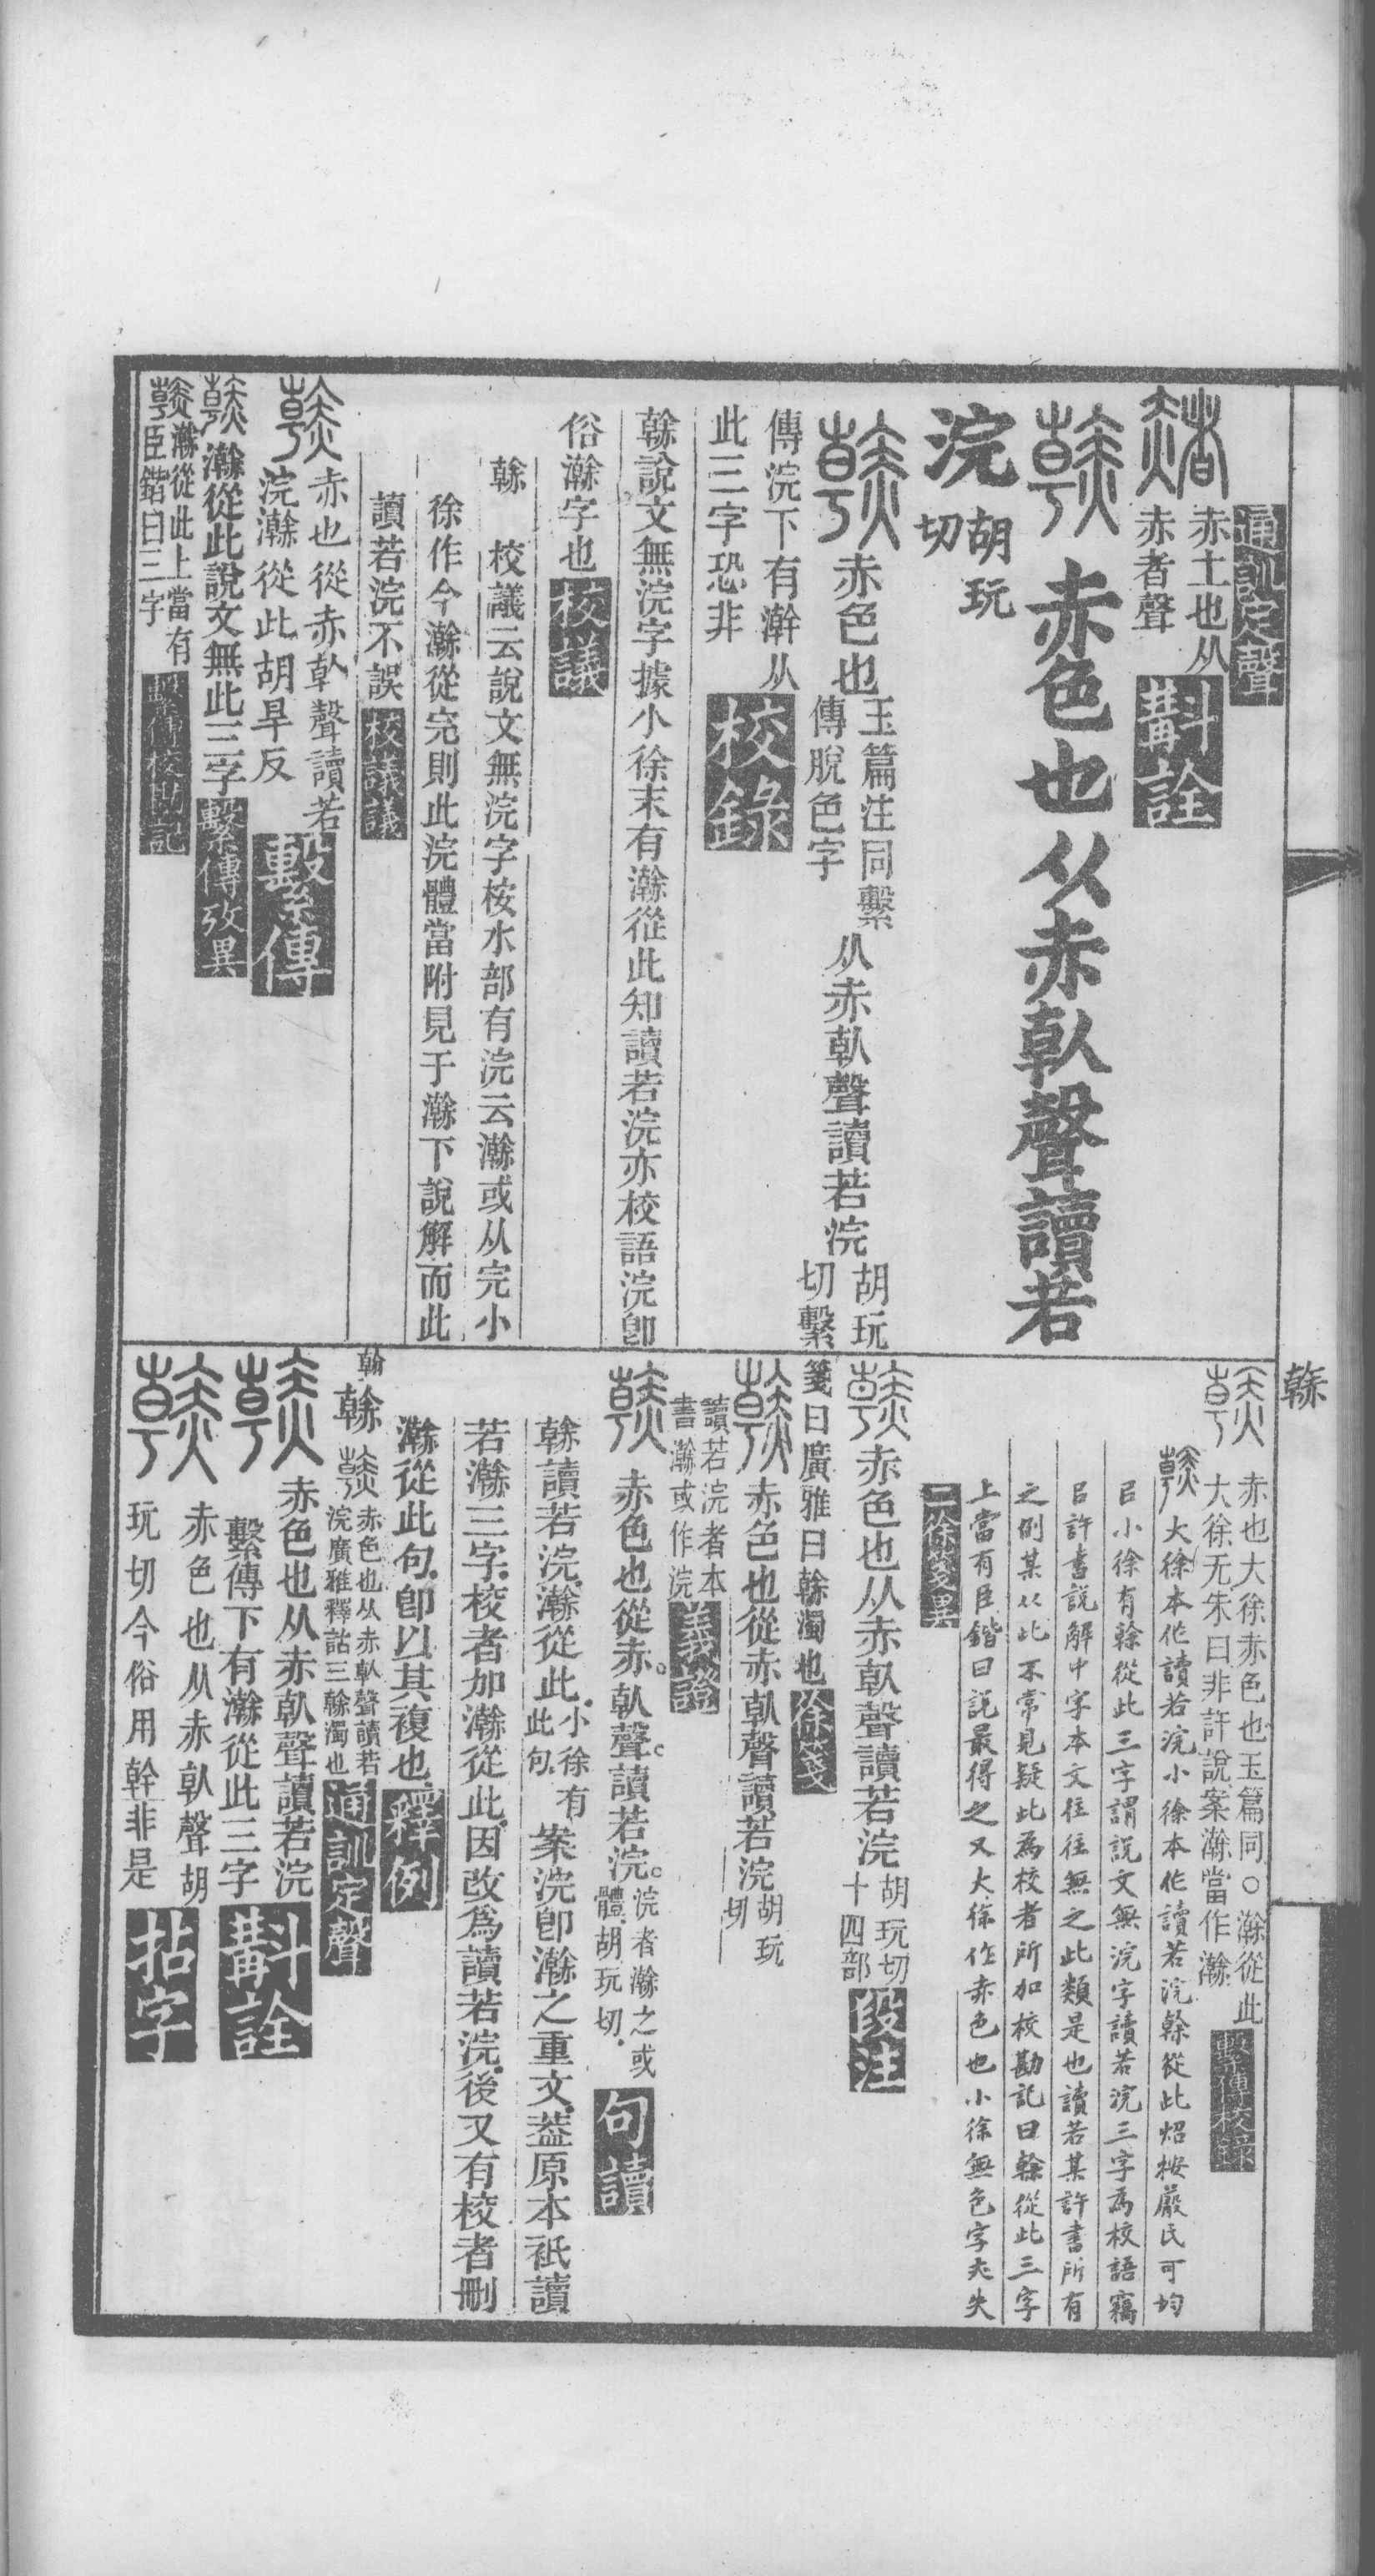 通訓定聲
赭 赤土也从
赤者聲 斠詮
赤色也从赤倝聲讀若
浣 胡玩
切
赤色也 玉篇注同繫
傳脫色字 从赤倝聲讀若浣 胡玩
切繫
傳浣下有澣从
此三字恐非 校錄
䮧說文無浣字據小徐末有瀚從此知讀若浣亦校語浣卽
俗瀚字也 校議
校議云說文無浣字桉水部有浣云瀚或从完小
徐作今瀚從完則此浣體當附見于瀚下說解而此
讀若浣不誤 校議議
赤也從赤倝聲讀若
浣瀚從此胡旱反 繫傳
瀚從此說文無此三字 繫傳攷異
瀚從此上當有
臣鍇曰三字 繫傳校勘記
赤也大徐赤色也玉篇同○瀚從此
大徐无朱曰非許說案瀚當作瀚 繫傳校錄
大徐本作讀若浣小徐本作讀若浣從此炤桉嚴氏可均
㠯小徐有從此三字謂說文無浣字讀若浣三字爲校語竊
㠯許書說解中字本文往往無之此類是也讀若某許書所有
之例某从此不常見疑此爲校者所加校勘記曰從此三字
上當有臣鍇曰說最得之又大徐作赤色也小徐無色字夫失
二徐箋異
赤色也从赤倝聲讀若浣 胡玩切
十四部 段注
箋曰廣雅曰濁也 徐箋
赤色也從赤倝聲讀若浣 胡玩
切
讀若浣者本
書瀚或作浣 義證
赤色也從赤倝聲讀若浣 浣者瀚之或
體胡玩切 句讀
讀若浣瀚從此 小徐有
此句 案浣卽瀚之重文蓋原本祇讀
若瀚三字校者加瀚從此因改爲讀若浣後又有校者刪
瀚從此句卽以其複也 釋例
赤色也从赤倝聲讀若
浣廣雅釋詁三濁也 通訓定聲
赤色也从赤倝聲讀若浣
繫傳下有瀚從此三字 斠詮
赤色也从赤倝聲胡
玩切今俗用幹非是 拈字